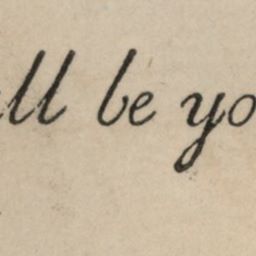 ll be yo